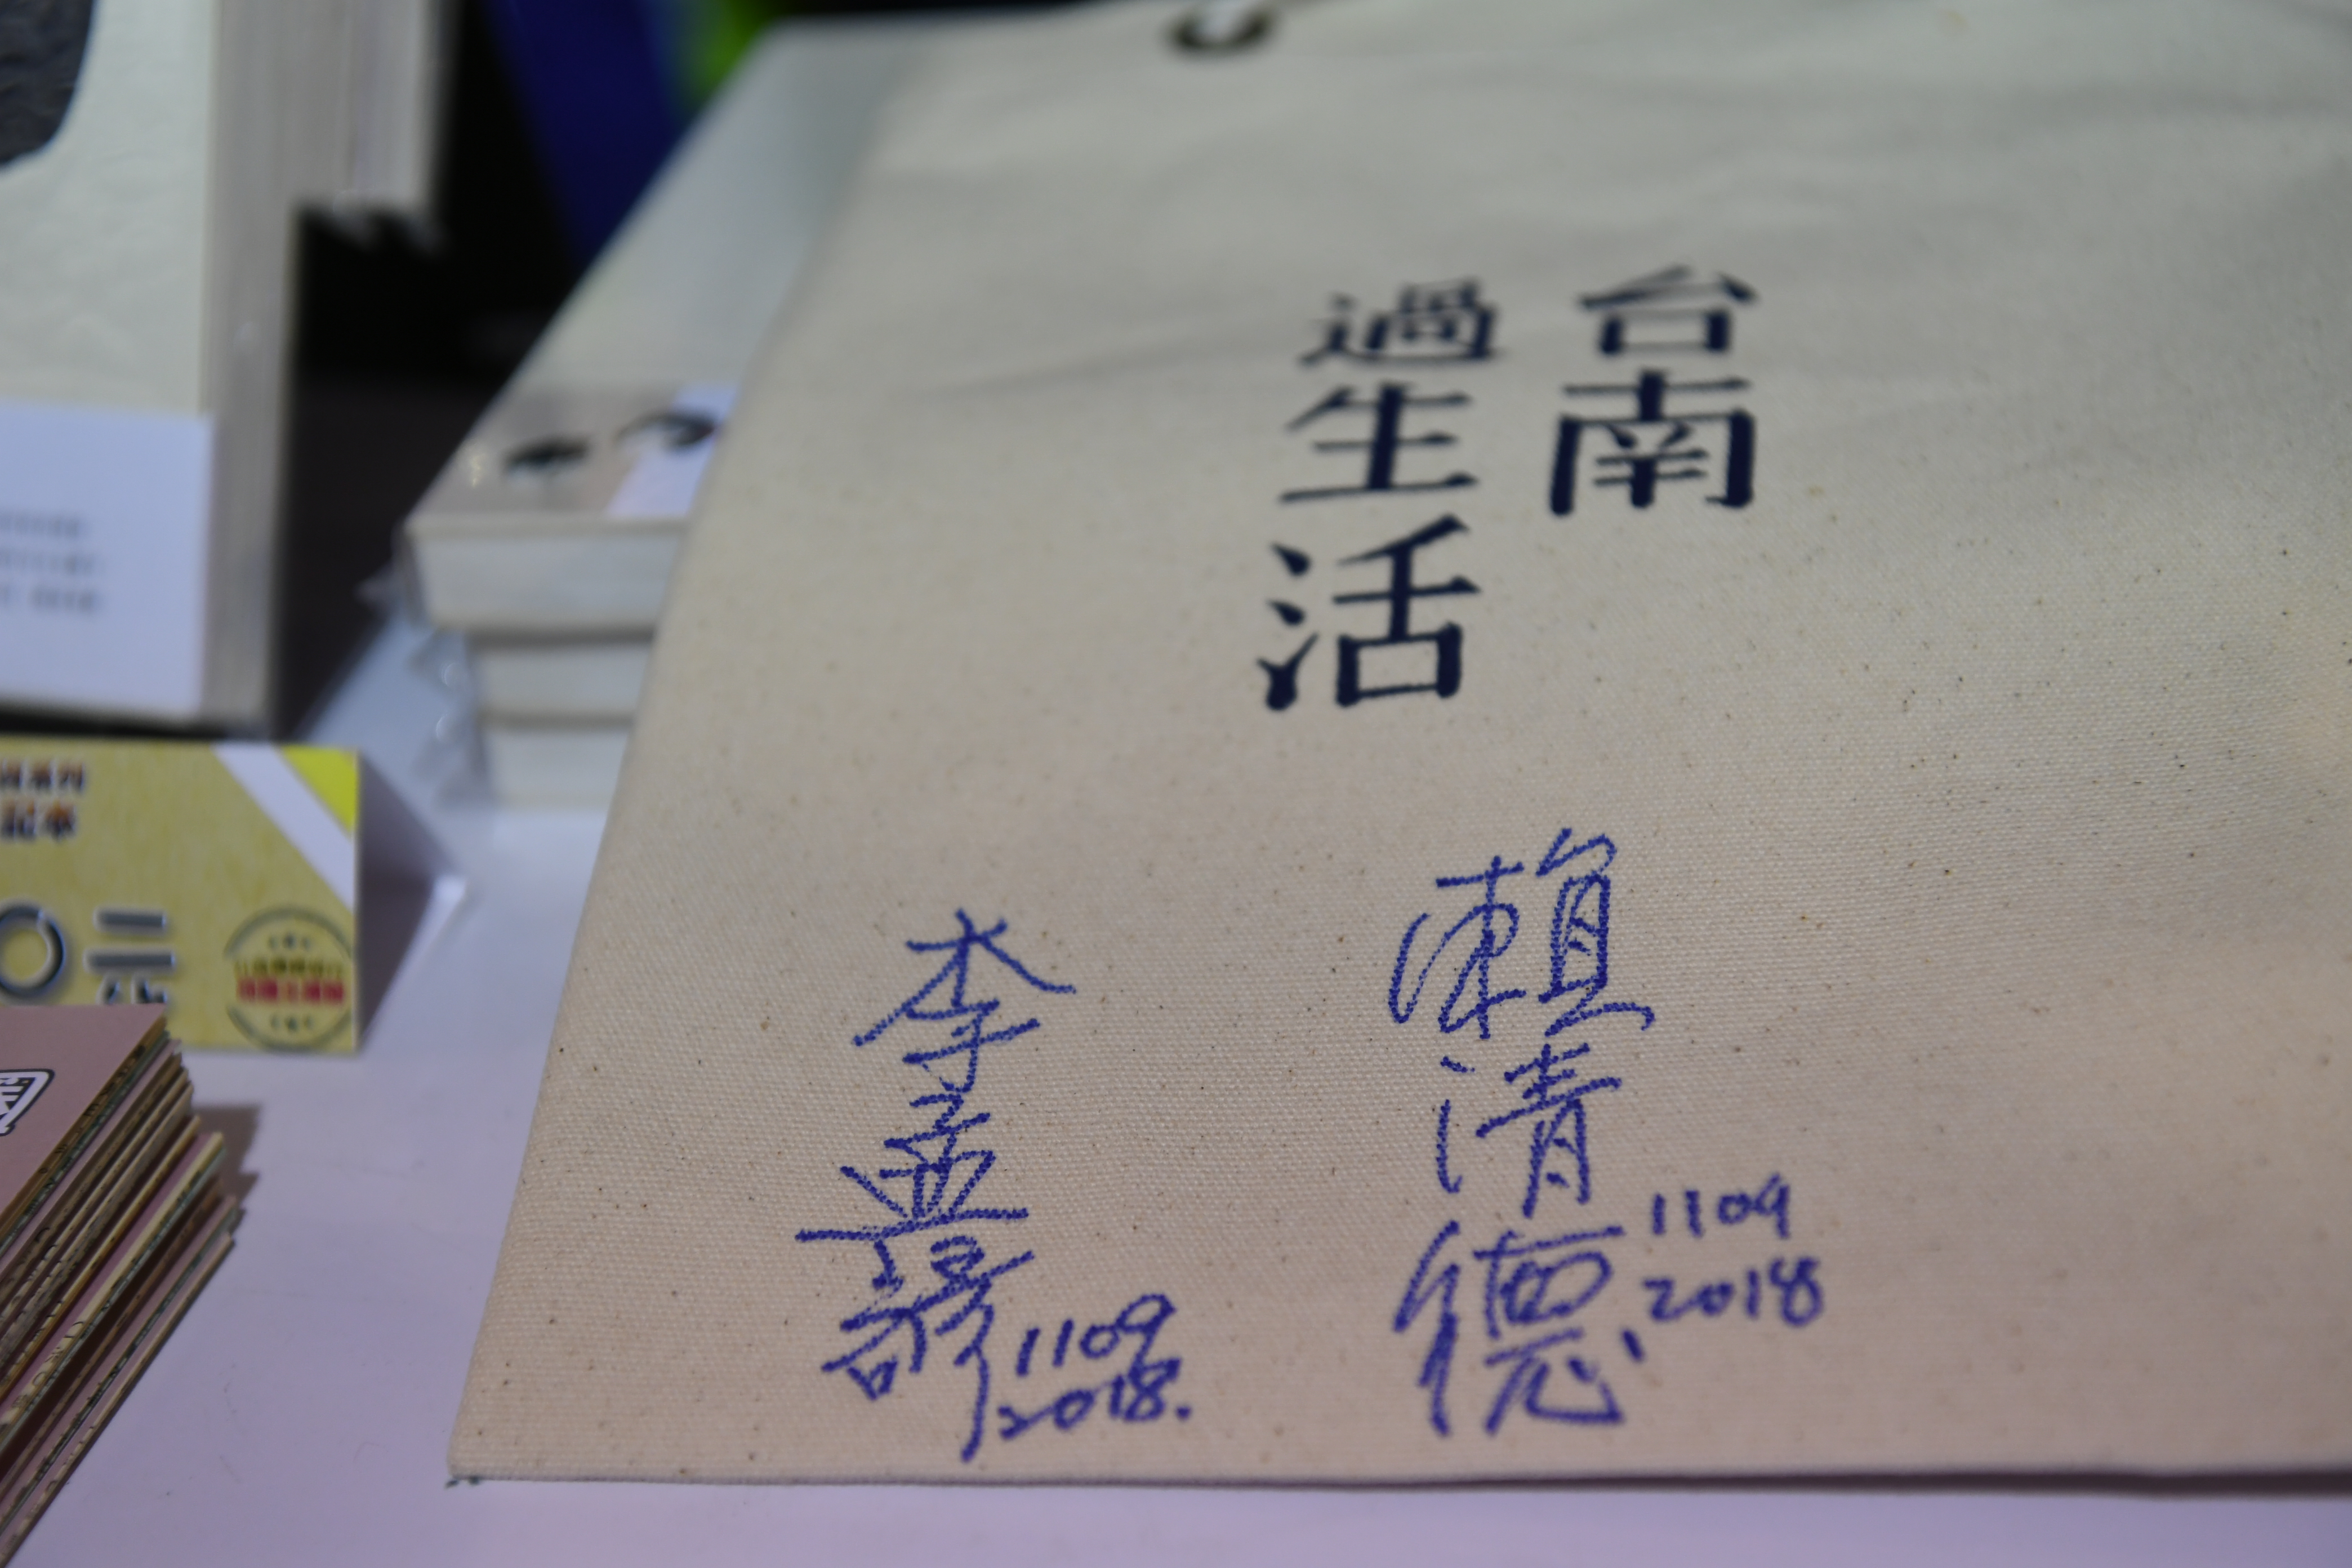 台南
過生活
賴清德
1109
2018
李孟諺
1109
2018.
記本
〇二